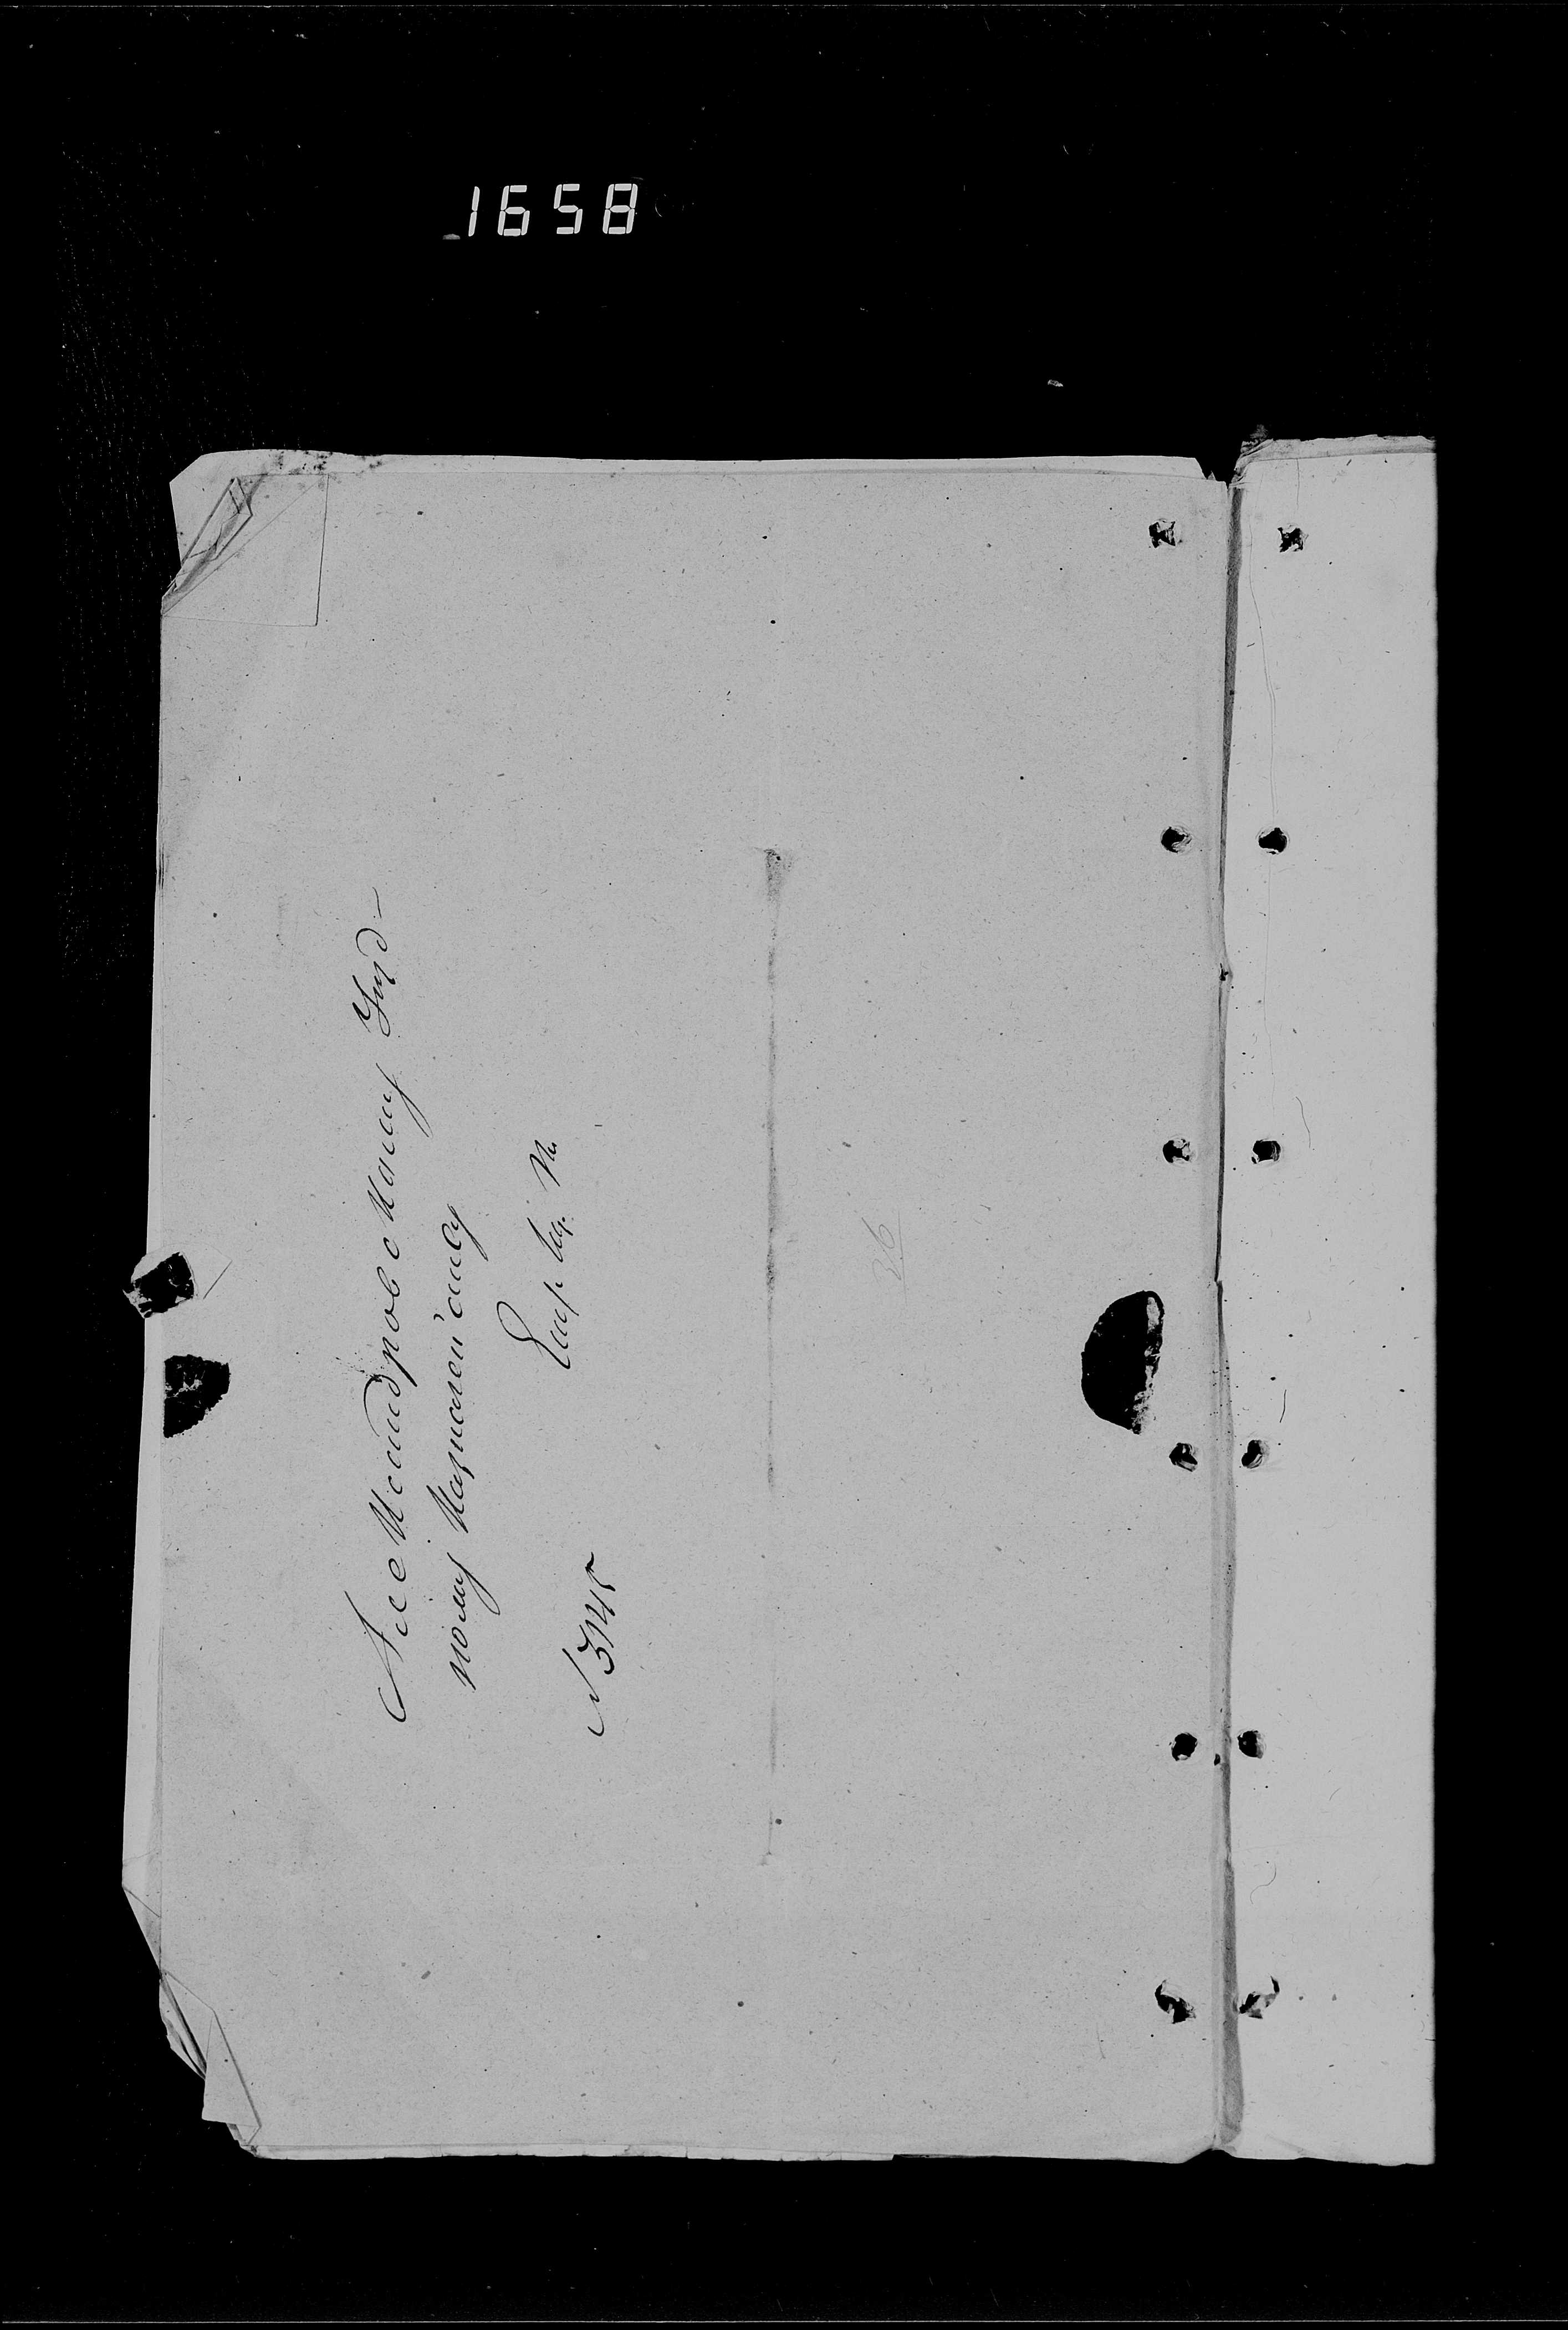 1658
Александровскому Уезд-
ному Казначейству
Екат. Губ.
№ 3145
36